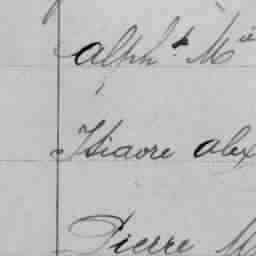 Alph.e M
Isidore Alex
Pierre M